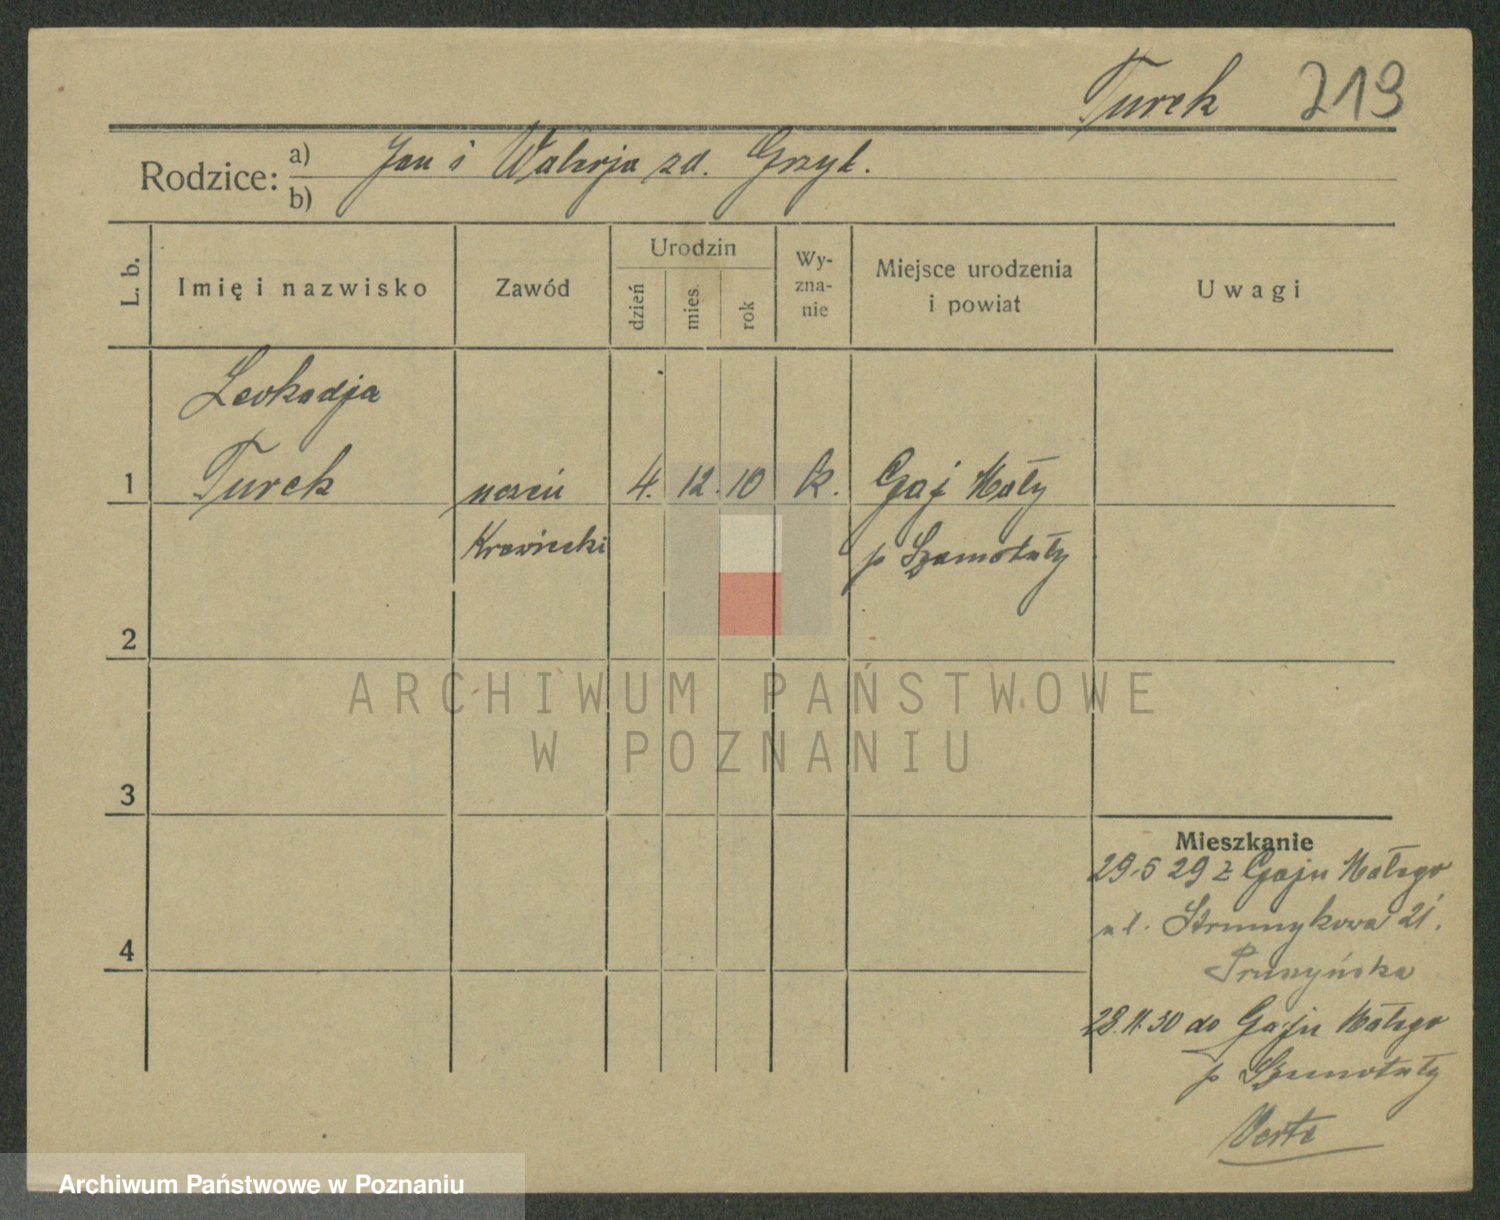 Turek 219
Rodzice: a) b) Jan i Walerja zd. Grzyb.
L. b.
Imię i nazwisko
Zawód
Urodzin
dzień
mies.
rok
Wy-
zna-
nie
Miejsce urodzenia
i powiat
Uwagi
Leokadja
1 Turek uczeń 4. 12. 10 k. Gaj Mały
Krawiecki p Szamotuły
2
ARCHIWUM PAŃSTWOWE
W POZNANIU
3
Mieszkanie
29.5 29 z Gaju Małego
ul. Strumykowa 21.
Pruszyńska
4
28.11.30 do Gaju Małego
p Szamotuły
Verte
Archiwum Państwowe w Poznaniu